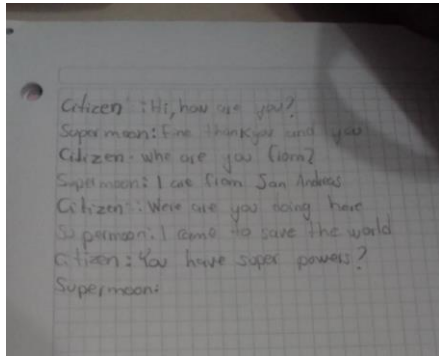 Citicen : Hi, how are you?
Supermoon: Fine thankyou and you
Citizen - whe are you from?
Supermoon: I are from San Andreas.
Citizen : Were are you doing here
Supermoon: I came to save the world
Citizen : You have super powers?
Supermoon: